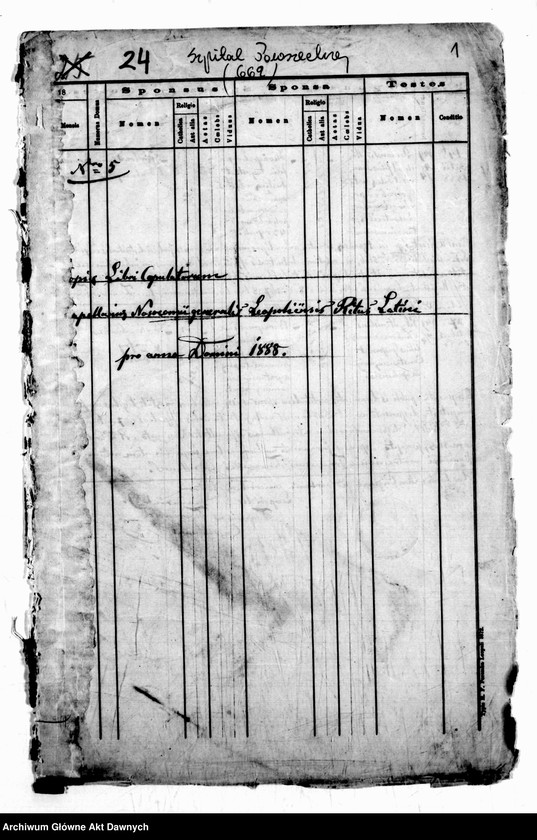 24 Szpital Powszechny 1
(669)
18 Sponsus Sponsa Testes
Mensis Numerus Domus Nomen Religio Catholica Aut alia Aetas Coelebs Viduus Nomen Religio Catholica Aut alia Aetas Coelebs Vidua Nomen Conditio
Nro 5
opia Libri Copulatorum
apellaniae Nosocomii generalis Leopoliensis Ritus Latini
pro anno Domini 1888.
Archiwum Główne Akt Dawnych